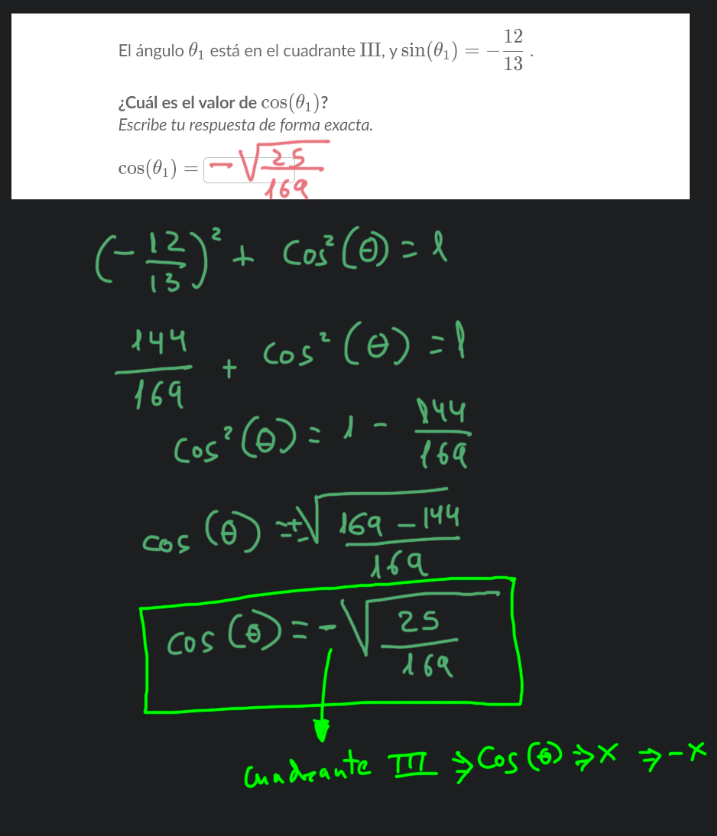 El ángulo θ₁ está en el cuadrante III, y sin(θ₁) = −12/13 .
¿Cuál es el valor de cos(θ₁)?
Escribe tu respuesta de forma exacta.
cos(θ₁) = −√(25/169)
(−12/13)² + Cos²(θ) = 1
144/169 + cos²(θ) = 1
cos²(θ) = 1 − 144/169
cos(θ) = ±√((169 − 144)/169)
cos(θ) = −√(25/169)
Cuadrante III ⇒ Cos(θ) ⇒ x ⇒ −x